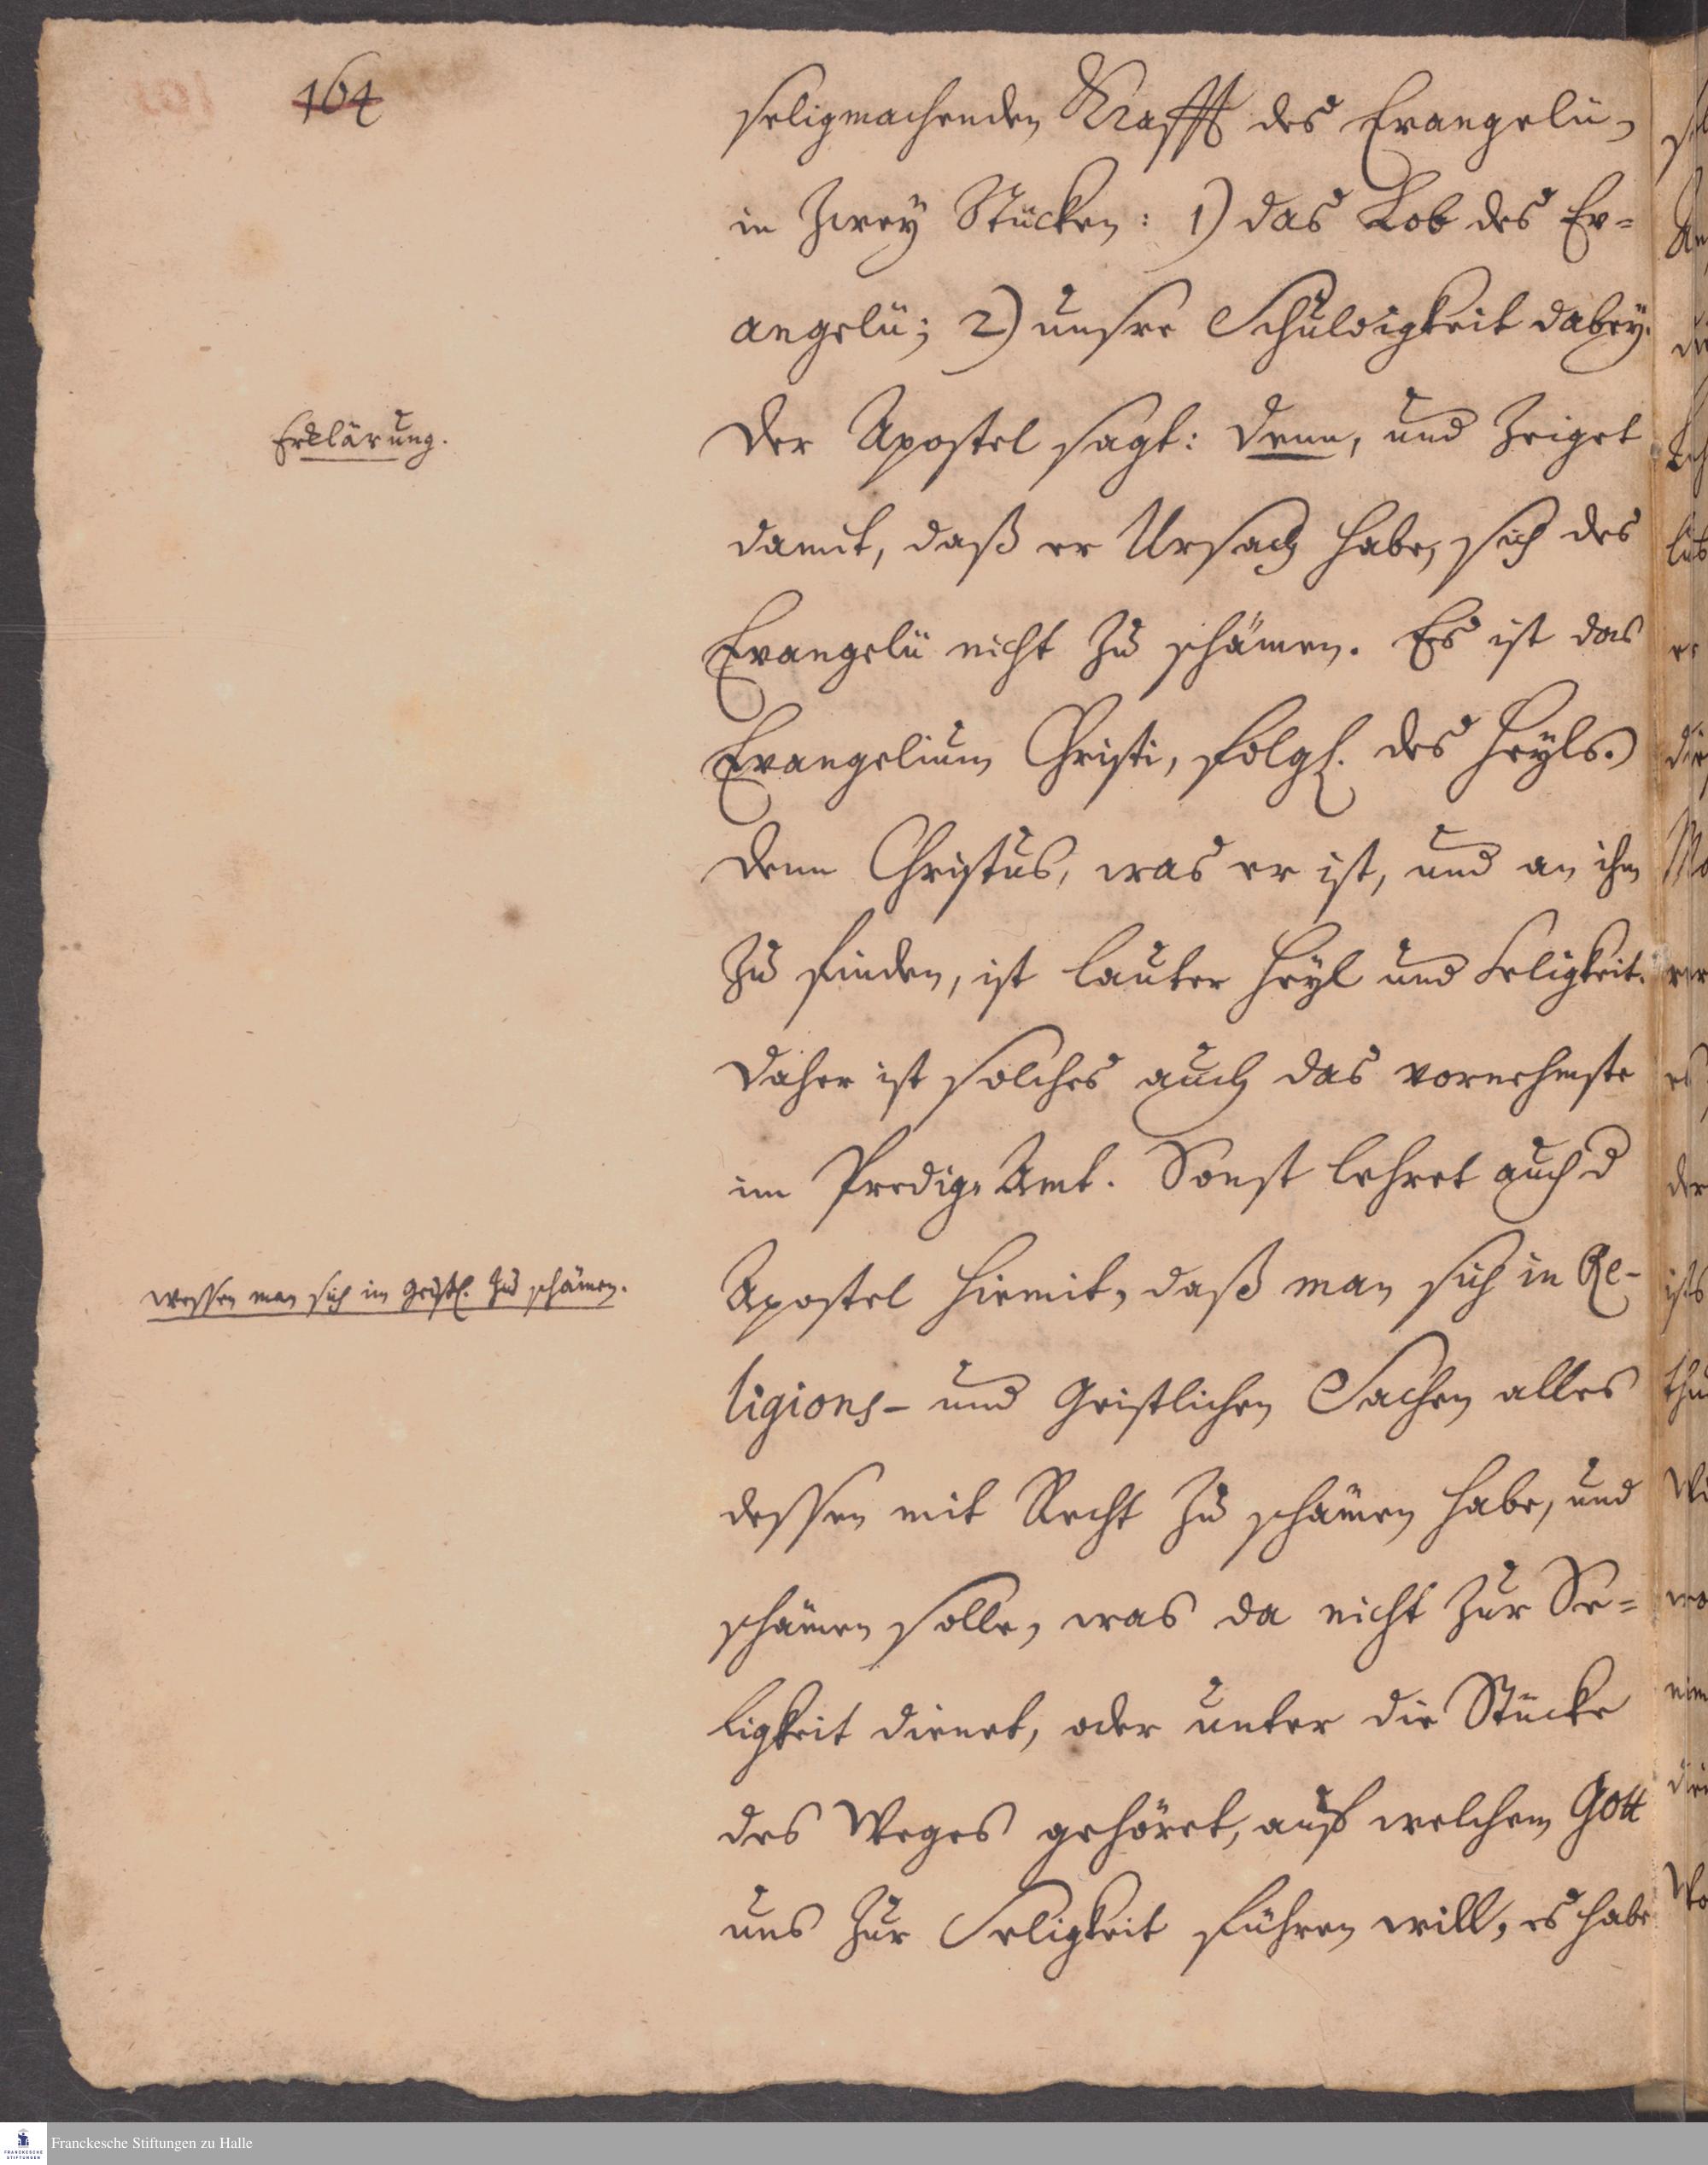 164
seligmachenden Krafft des Evangelii,
in zwey Stücken: 1) das Lob des Ev-
angelii; 2) unsre Schuldigkeit dabey.
Erklärung.
Der Apostel sagt: denn, und zeiget
damit, daß er Ursach habe, sich des
Evangelii nicht zu schämen. Es ist das
Evangelium Christi, folgl. des Heyls.
Denn Christus, was er ist, und an ihm
zu finden, ist lauter Heyl und Seligkeit.
Daher ist solches auch das vornehmste
im Predig-Amt. Sonst lehret auch d
wessen man sich im Geistl. zu schämen.
Apostel hiemit, daß man sich in Re-
ligions- und Geistlichen Sachen alles
dessen mit Recht zu schämen habe, und
schämen solle, was da nicht zur Se-
ligkeit dienet, oder unter die Stücke
des Weges gehöret, auf welchem Gott
uns zur Seligkeit führen will, es habe
Franckesche Stiftungen zu Halle
FRANCKESCHE
STIFTUNGEN